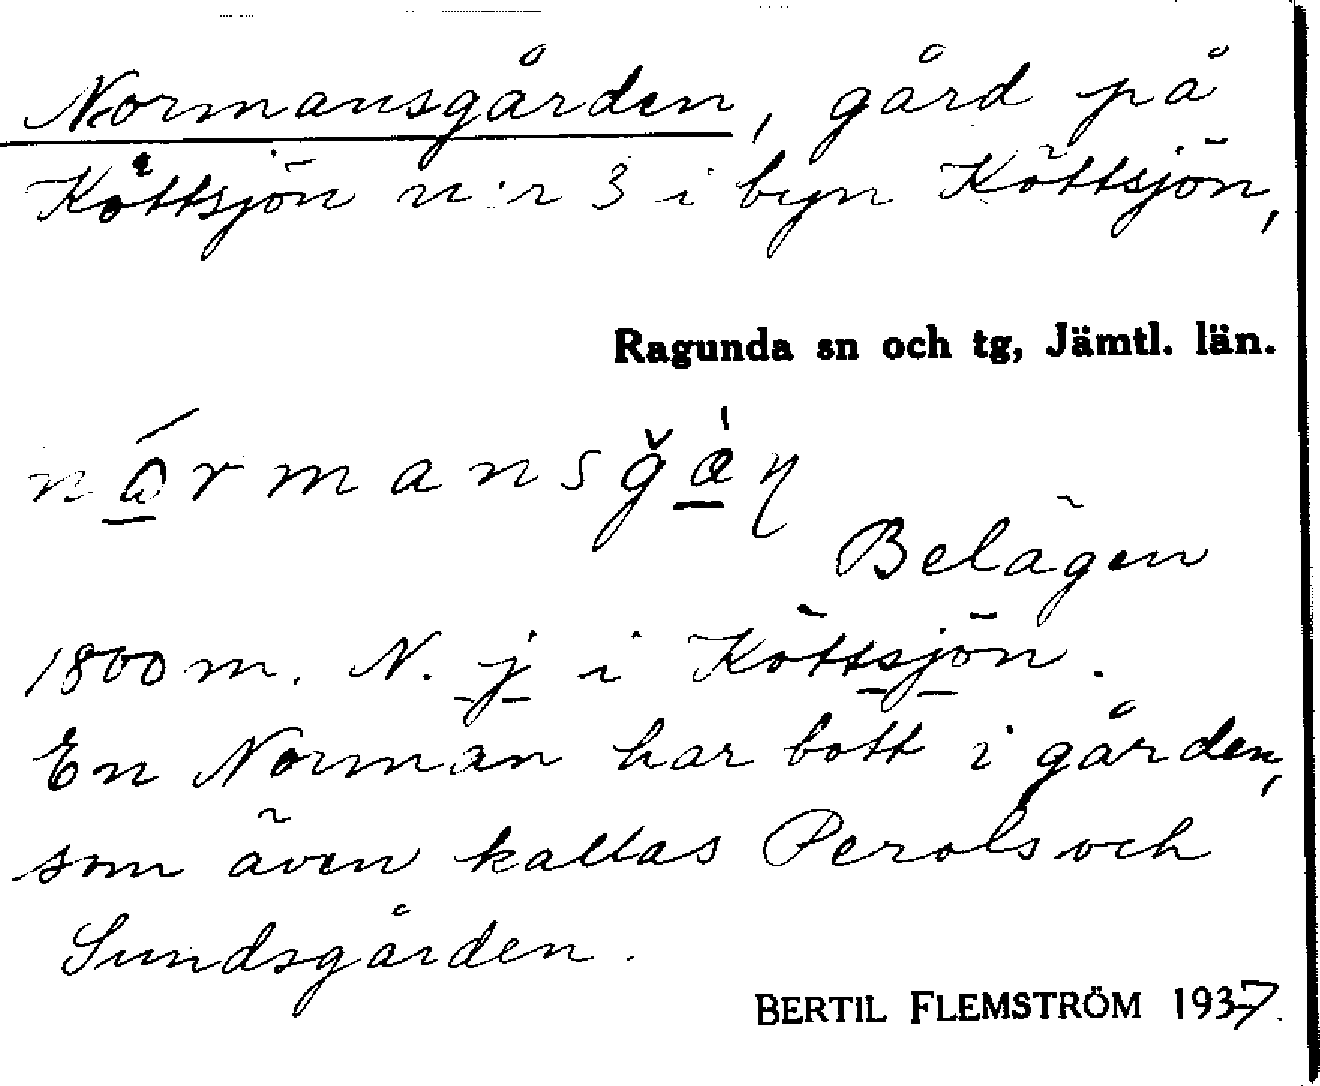 Normansgården, gård på
Köttsjön n:r 3 i byn Köttsjön,
Ragunda sn och tg, Jämtl. län.
Belägen
1800 m. N. j i Köttsjön.
En Norman har bott i gården,
som även kallas Perols och
Sundsgården.
BERTIL FLEMSTRÖM 1937.